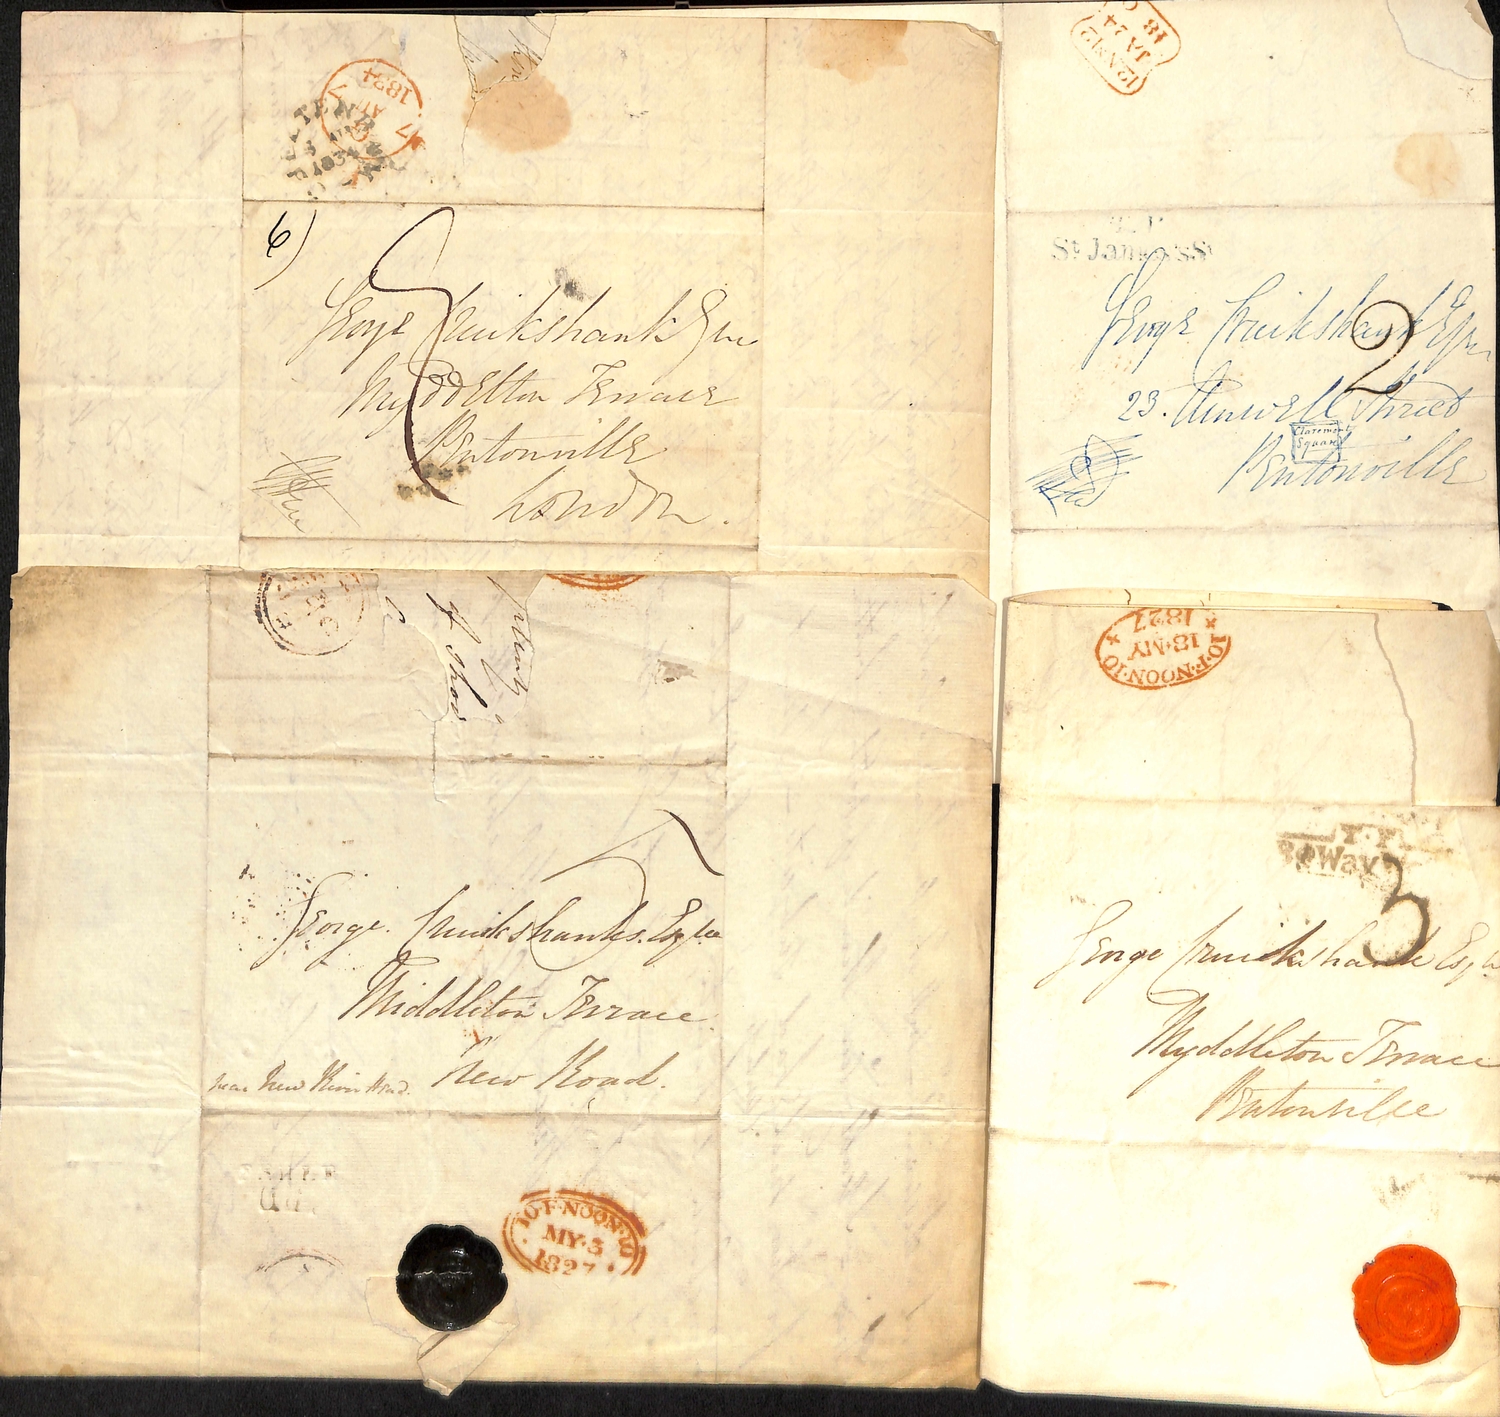 7
AU
1834
1834
6)
George Cruikshank Esqre
Myddelton Terrace
Pentonville
London.
12 NN 12
JA 24
18
St James's St
2
George Cruikshank Esqre
23. Amwell Street
Claremont
Square
Pentonville
7
George. Cruikshanks. Esqre
Middleton Terrace
near New River Head. New Road.
10·F·NOON·10
MY·3
1827
10·F·NOON·10
18·MY
1827
T.P
Way
3
George Cruikshank Esqre
Myddleton Terrace
Pentonville